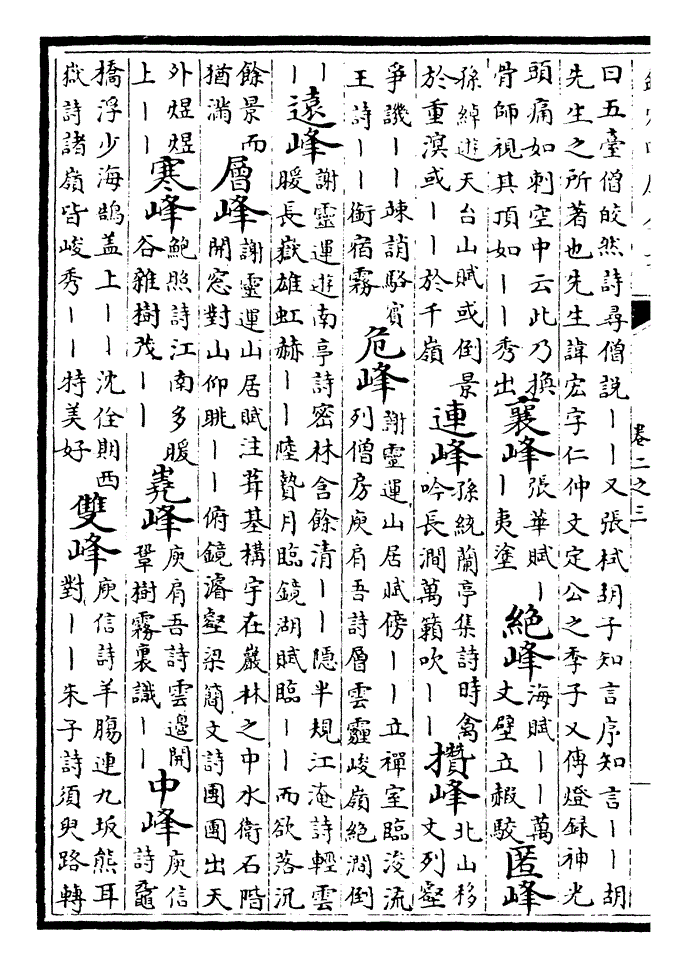 卷二之三
曰五臺僧皎然詩尋僧說丨丨又張栻胡子知言序知言丨丨胡
先生之所著也先生諱宏字仁仲文定公之季子又傳燈録神光
頭痛如刺空中云此乃換
骨師視其頂如丨丨秀出
襄峰
張華賦丨
丨夷塗
絕峰
海賦丨丨萬
丈壁立赮駮
匿峰
孫綽遊天台山賦或倒景
於重溟或丨丨於千嶺
連峰
孫統蘭亭集詩時禽
吟長澗萬籟吹丨丨
攢峰
北山移
文列壑
爭譏丨丨竦誚駱賓
王詩丨丨銜宿霧
危峰
謝靈運山居賦傍丨丨立禪室臨浚流
列僧房庾肩吾詩層雲霾峻嶺絶澗倒
丨
丨
遠峰
謝靈運遊南亭詩密林含餘清丨丨隱半規江淹詩輕雲
曖長嶽雄虹赫丨丨陸贄月臨鏡湖賦臨丨丨而欲落沉
餘景而
猶滿
層峰
謝靈運山居賦注葺基構宇在巖林之中水衛石階
開窓對山仰眺丨丨俯鏡濬壑梁簡文詩團團出天
外煜煜
上丨丨
寒峰
鮑照詩江南多暖
谷雜樹茂丨丨
嶤峰
庾肩吾詩雲邊開
鞏樹霧裏識丨丨
中峰
庾信
詩龜
橋浮少海鵠盖上丨丨沈佺期西
嶽詩諸嶺皆峻秀丨丨特美好
雙峰
庾信詩羊腸連九坂熊耳
對丨丨朱子詩須臾路轉